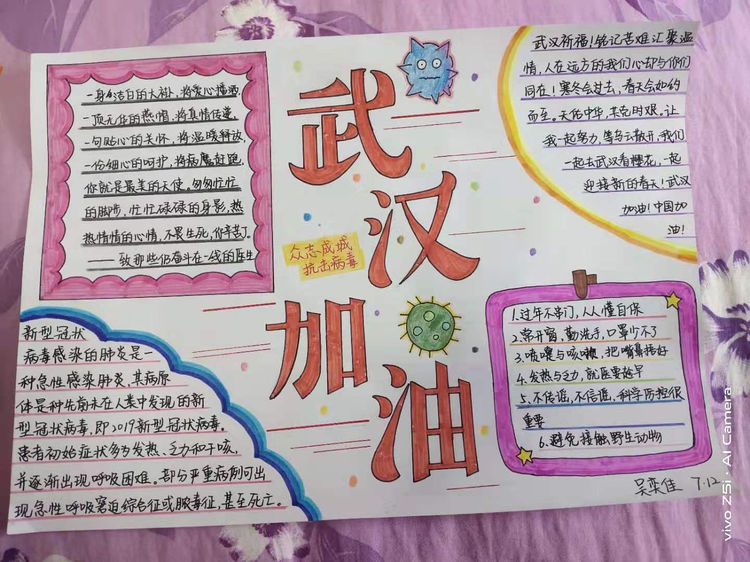 武汉加油
众志成城
抗击病毒
一身洁白的大褂,将爱心播洒.
一顶无任的热情,将真情传递.
一句贴心的关怀,将温暖释放,
一份细心的呵护,将病魔赶跑,
你就是最美的天使.匆匆忙忙
的脚步,忙忙碌碌的身影,热
热情情的心情,不畏生死,你辛苦了。
——致那些仍奋斗在一线的医生
武汉祈福!铭记苦难汇聚温
情,人在远方的我们心却与你们
同在!寒冬会过去,春天会如约
而至。天佑中华,共克时艰,让
我一起努力,等乌云散开,我们
一起去武汉看樱花,一起
迎接新的春天!武汉
加油!中国加
油!
新型冠状
病毒感染的肺炎是一
种急性感染肺炎,其病原
体是种先前未在人类中发现的新
型冠状病毒,即2019新型冠状病毒。
患者初始症状多为发热、乏力和干咳,
并逐渐出现呼吸困难。部分严重病例可出
现急性呼吸窘迫综合征或脓毒征,甚至死亡。
1.过年不串门,人人懂自保
2.常开窗,勤洗手,口罩少不了
3.喷嚏与咳嗽,把嘴鼻捂好
4.发热与乏力,就医要趁早
5.不传谣,不信谣,科学防控很
重要
6.避免接触野生动物
吴奕佳 7.12
vivo Z5i · AI Camera